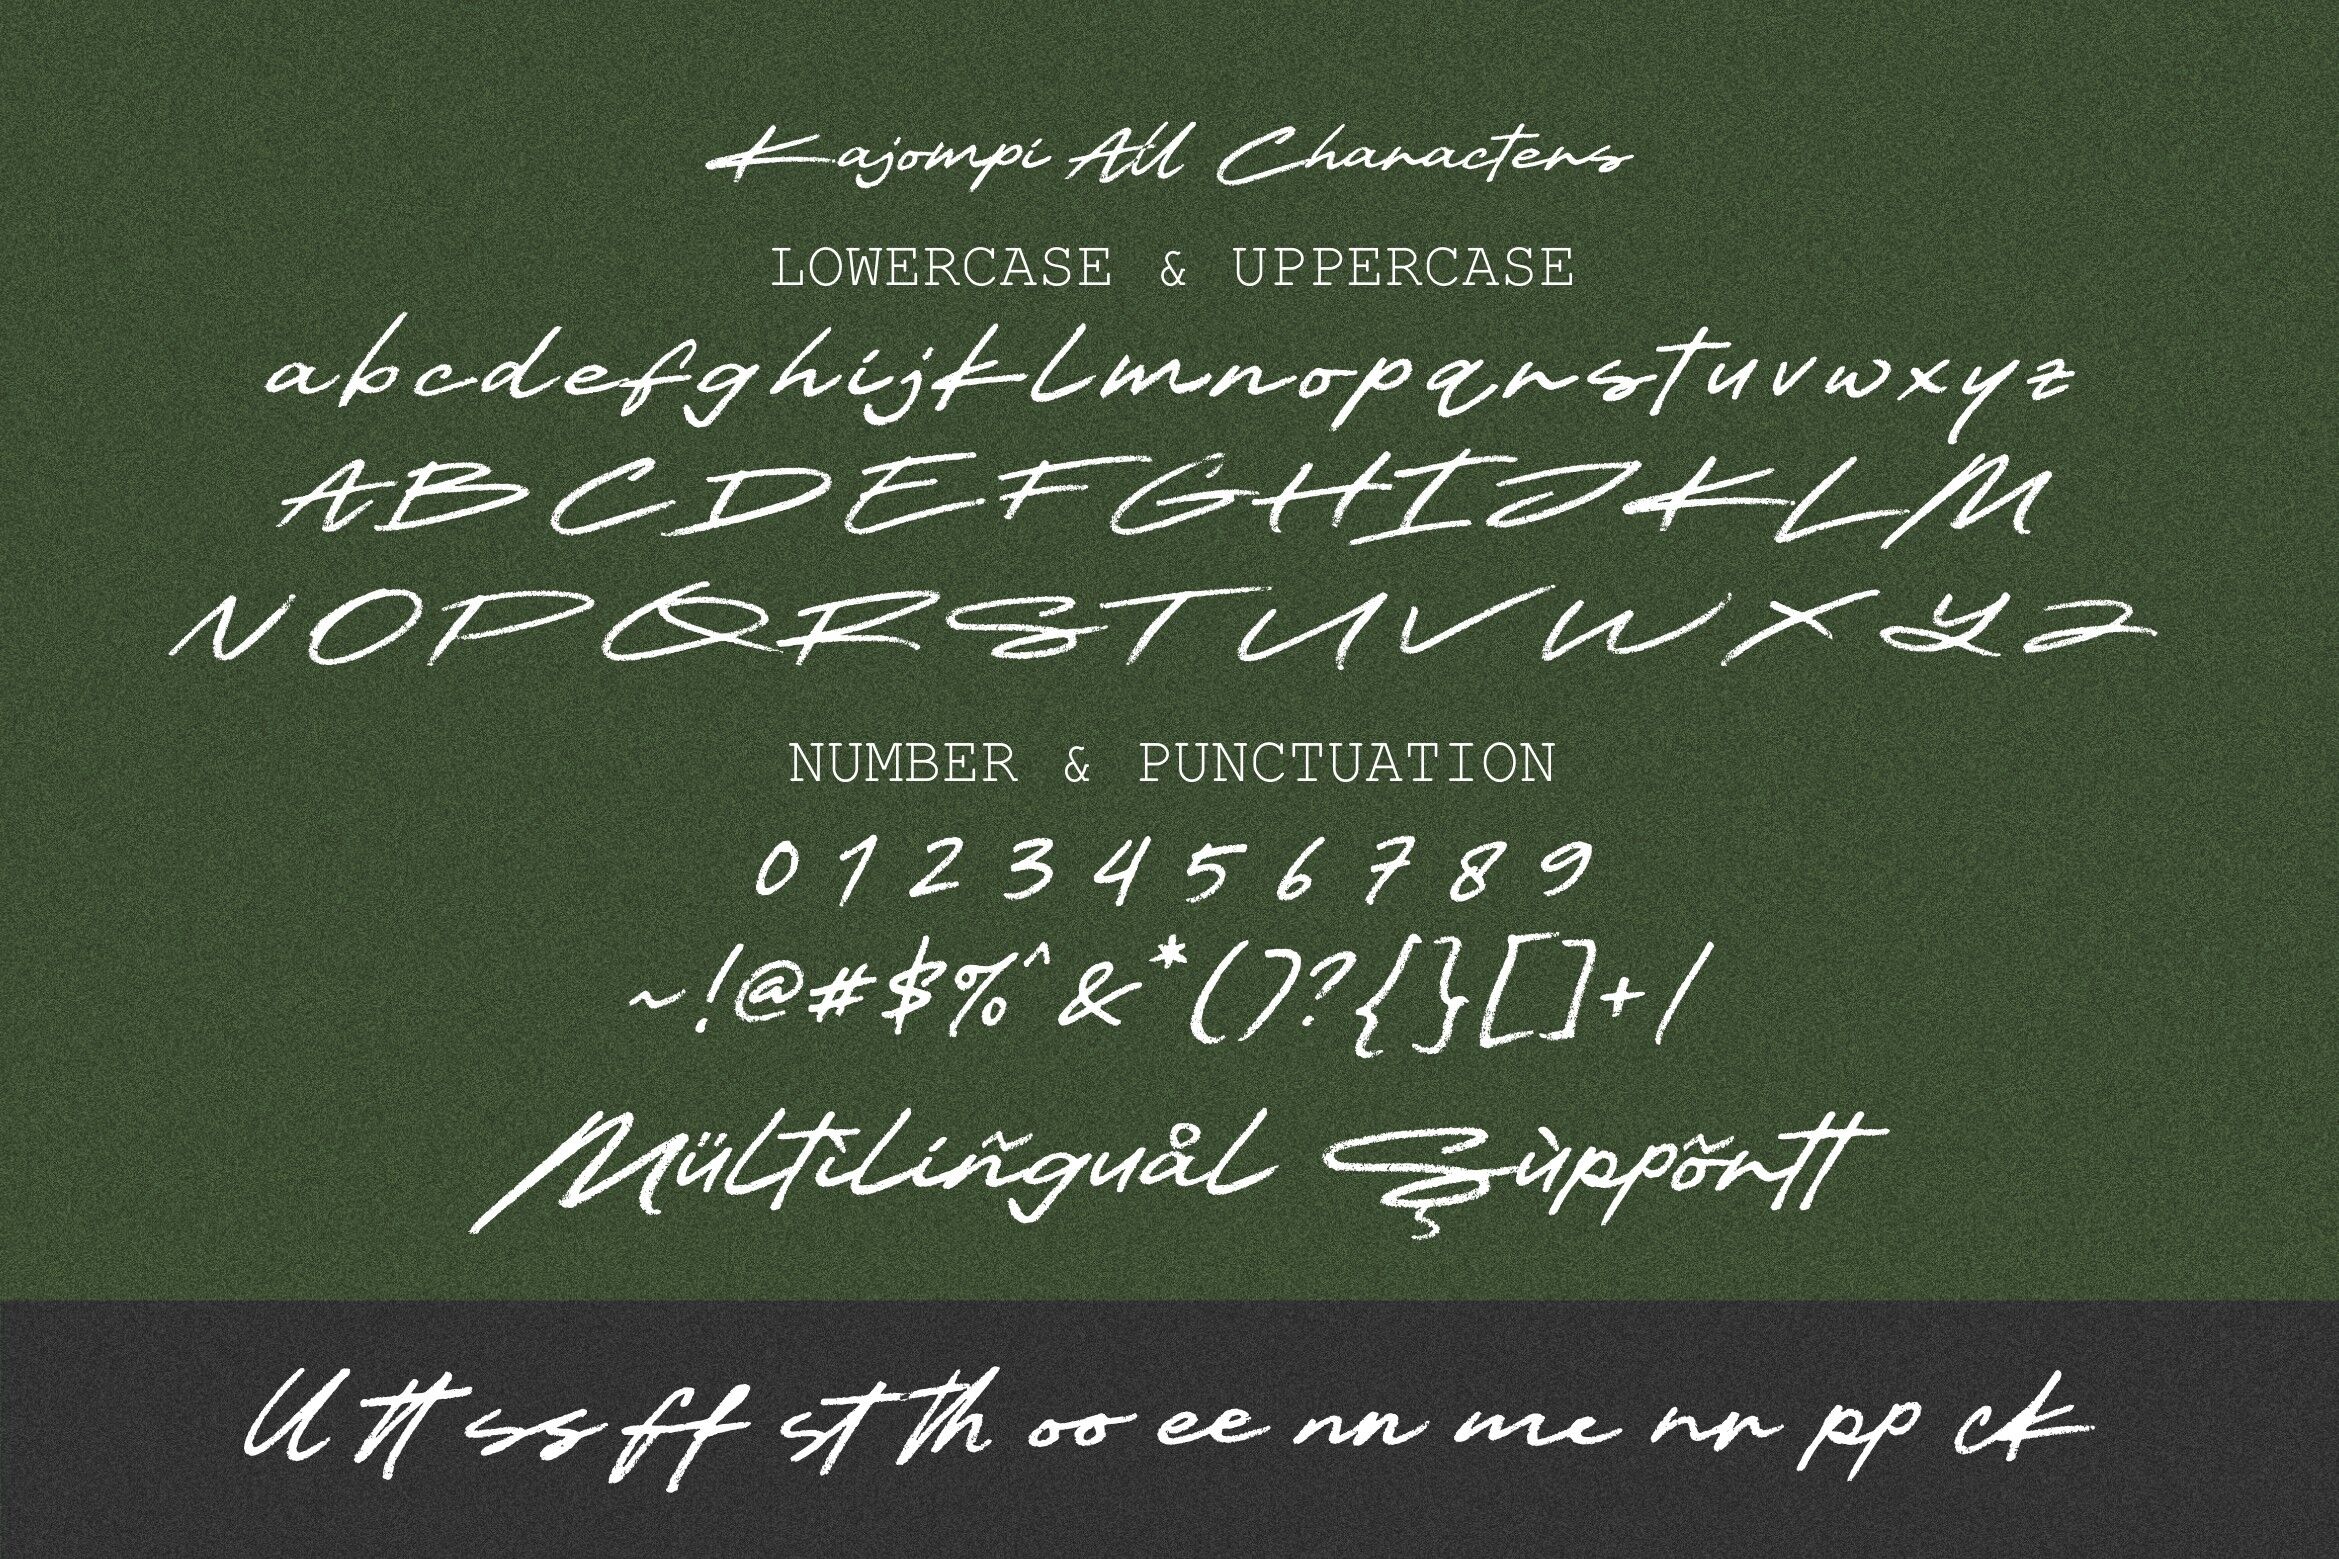 Kajompi All Characters
LOWERCASE & UPPERCASE
abcdefghijklmnopqrstuvwxyz
ABCDEFGHIJKLM
NOPQRSTUVWXYZ
NUMBER & PUNCTUATION
0 1 2 3 4 5 6 7 8 9
~!@#$%^&*()?{}[]+/
Mültìlíñguål Şùppõrtt
ll tt ss ff st th oo ee nn me rr pp ck